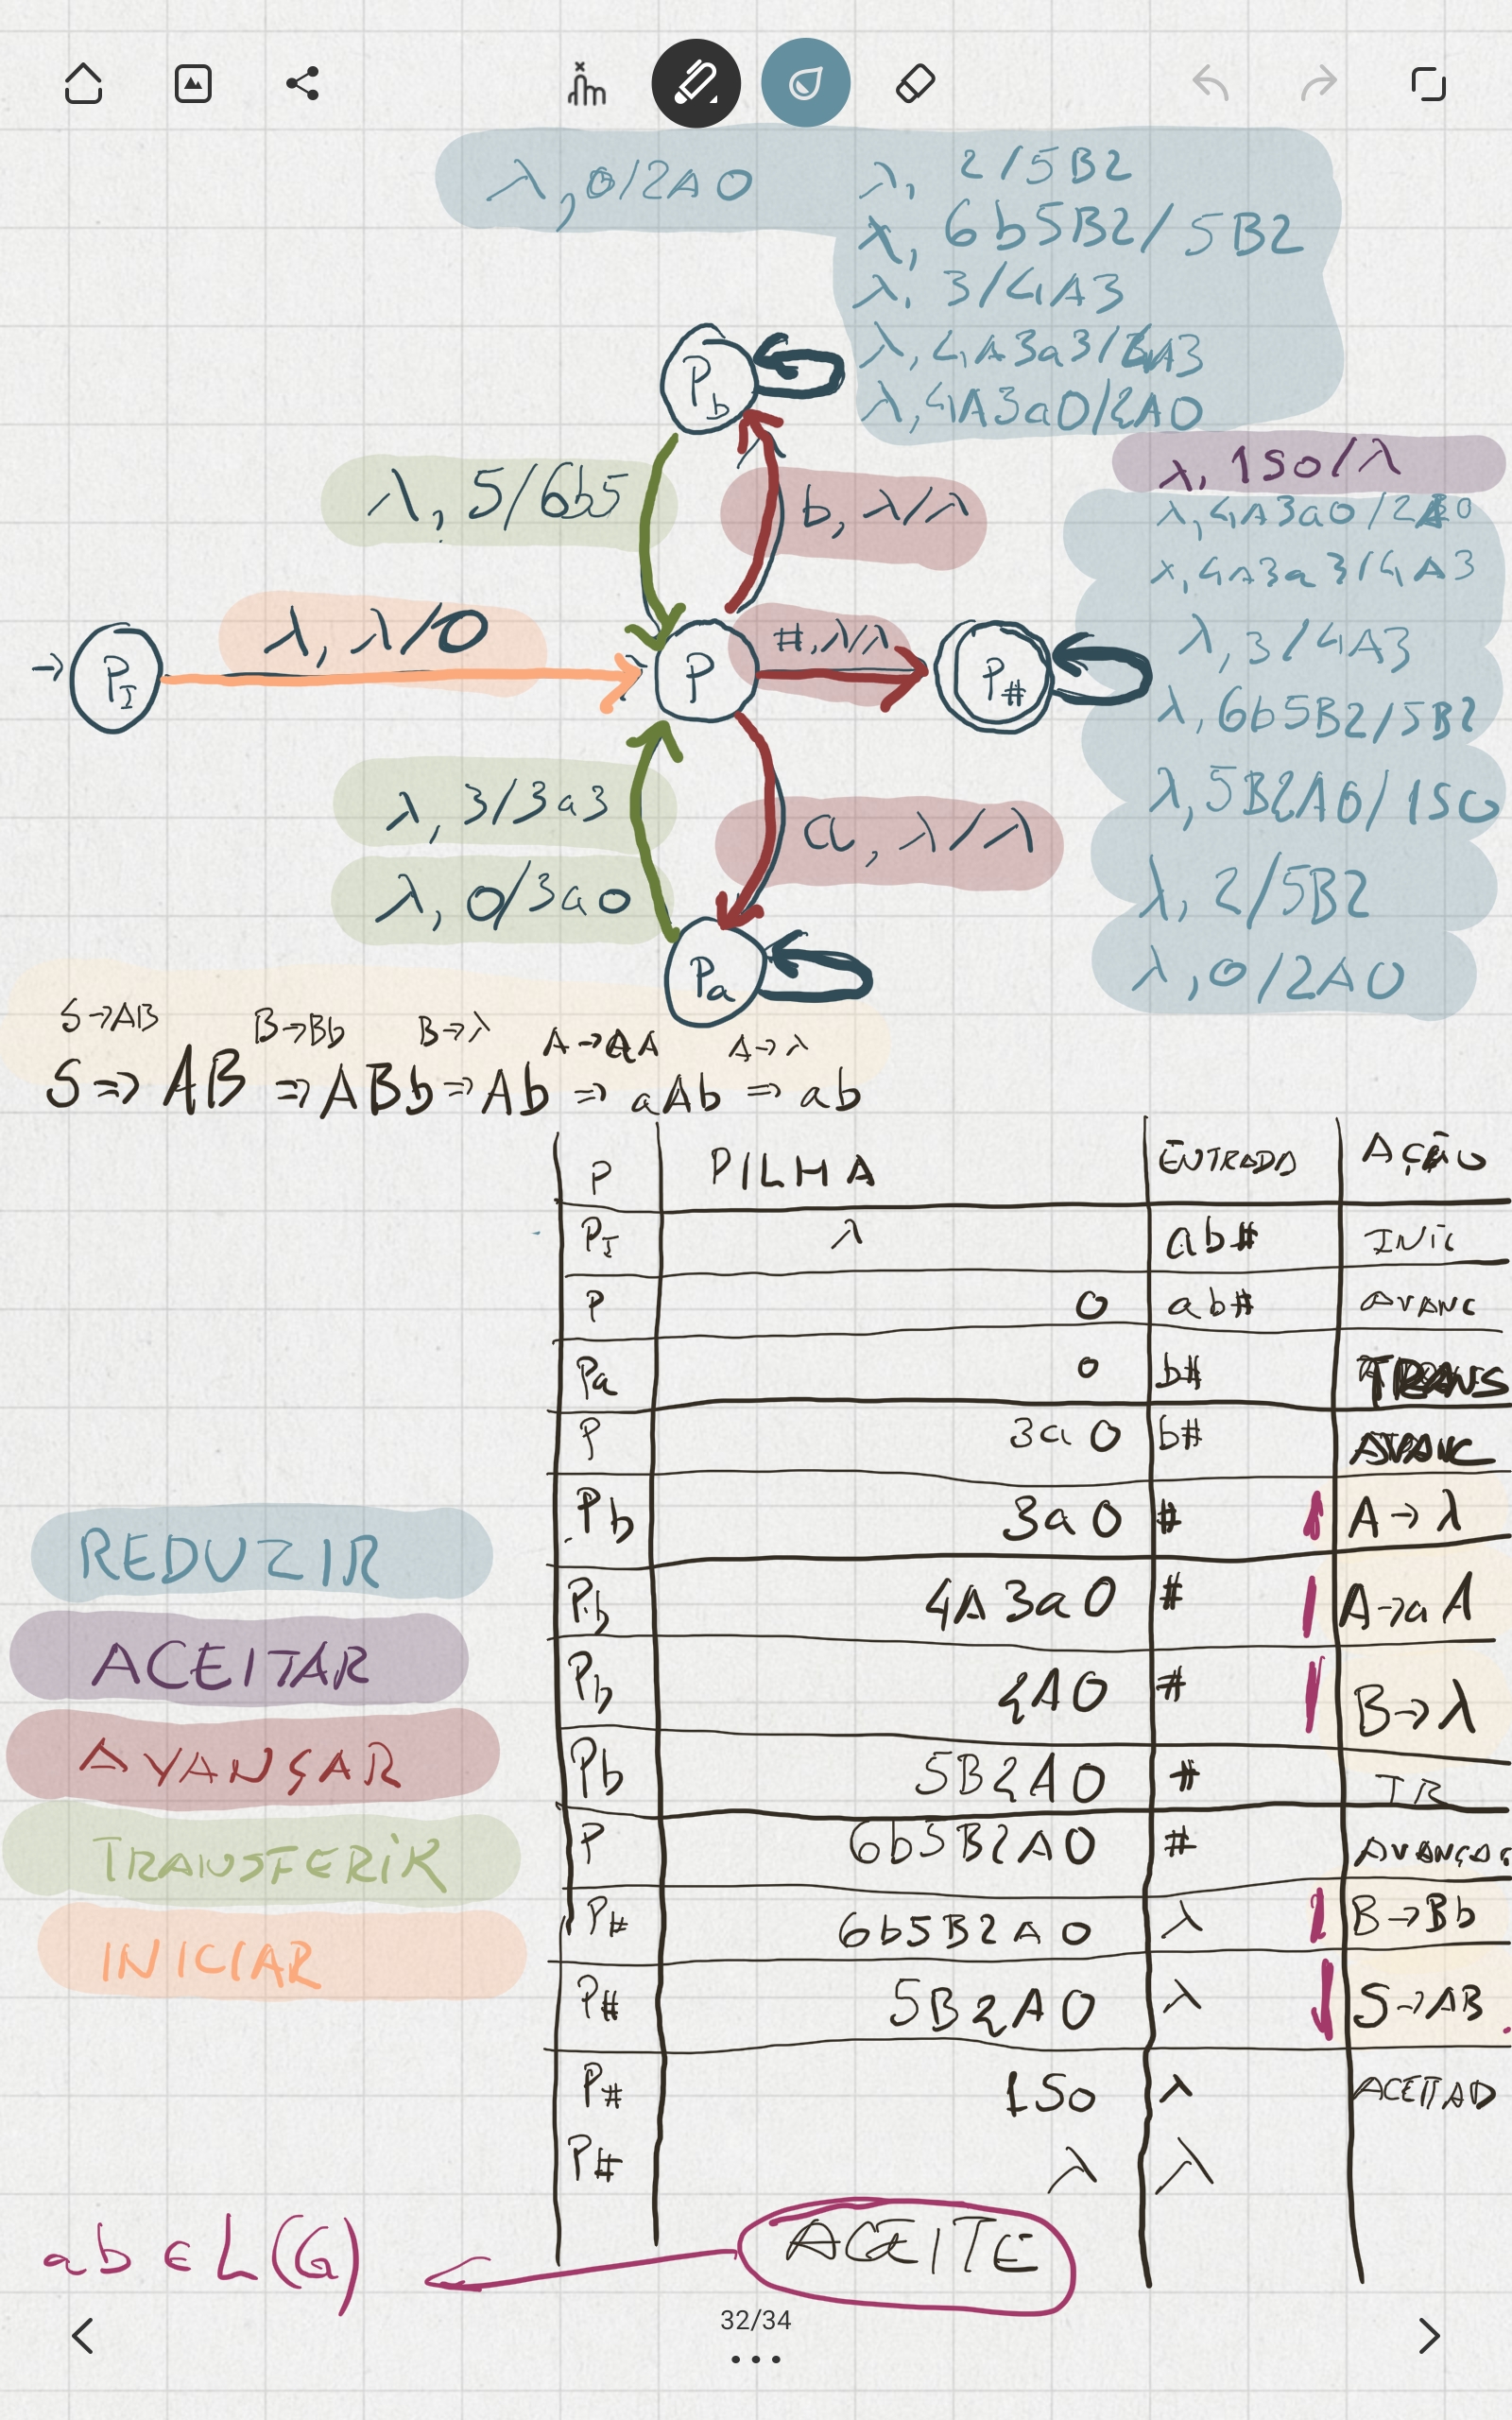 λ, 0/2A0
λ, 2/5B2
λ, 6b5B2/5B2
λ, 3/4A3
λ, 4A3a3/4A3
λ, 4A3a0/2A0
Pb
λ, 1S0/λ
λ, 5/6b5
b, λ/λ
λ, 4A3a0/2A0
λ, 4A3a3/4A3
λ, λ/0
#, λ/λ
λ, 3/4A3
→ PI
P
P#
λ, 6b5B2/5B2
λ, 3/3a3
a, λ/λ
λ, 5B2A0/1S0
λ, 0/3a0
λ, 2/5B2
Pa
λ, 0/2A0
S→AB B→Bb B→λ A→aA A→λ
S ⇒ AB ⇒ ABb ⇒ Ab ⇒ aAb ⇒ ab
P PILHA ENTRADA AÇÃO
PI λ ab# INIC
P 0 ab# AVANC
Pa 0 b# TRANS
P 3a0 b# AVANC
Pb 3a0 # A→λ
Pb 4A3a0 # A→aA
Pb 2A0 # B→λ
Pb 5B2A0 # TR
P 6b5B2A0 # AVANÇAR
P# 6b5B2A0 λ B→Bb
P# 5B2A0 λ S→AB
P# 1S0 λ ACEITAD
P# λ λ
REDUZIR
ACEITAR
AVANÇAR
TRANSFERIR
INICIAR
ab ∈ L(G)
ACEITE
32/34